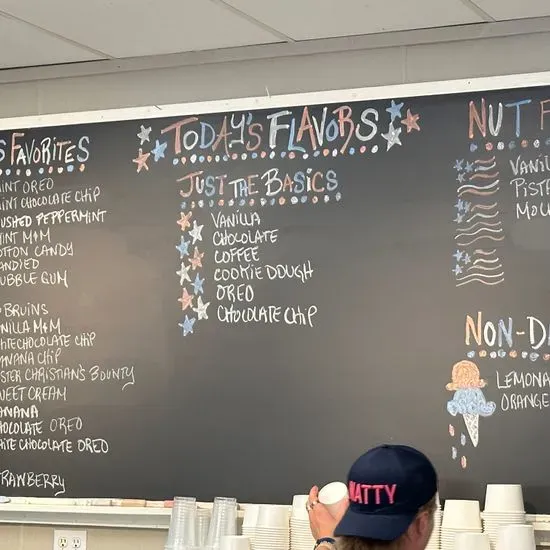 S FAVORITES
INT OREO
INT CHOCOLATE CHIP
USHED PEPPERMINT
INT M+M
OTTON CANDY
ANDIED
UBBLE GUM
BRUINS
NILLA M+M
HITECHOCOLATE CHIP
ANANA CHIP
STER CHRISTIAN'S BOUNTY
WEET CREAM
ANANA
HOCOLATE OREO
HITE CHOCOLATE OREO
TRAWBERRY
TODAY'S FLAVORS
JUST THE BASICS
VANILLA
CHOCOLATE
COFFEE
COOKIE DOUGH
OREO
CHOCOLATE CHIP
NUT F
VANIL
PIST
NON-D
LEMONA
ORANGE
NATTY